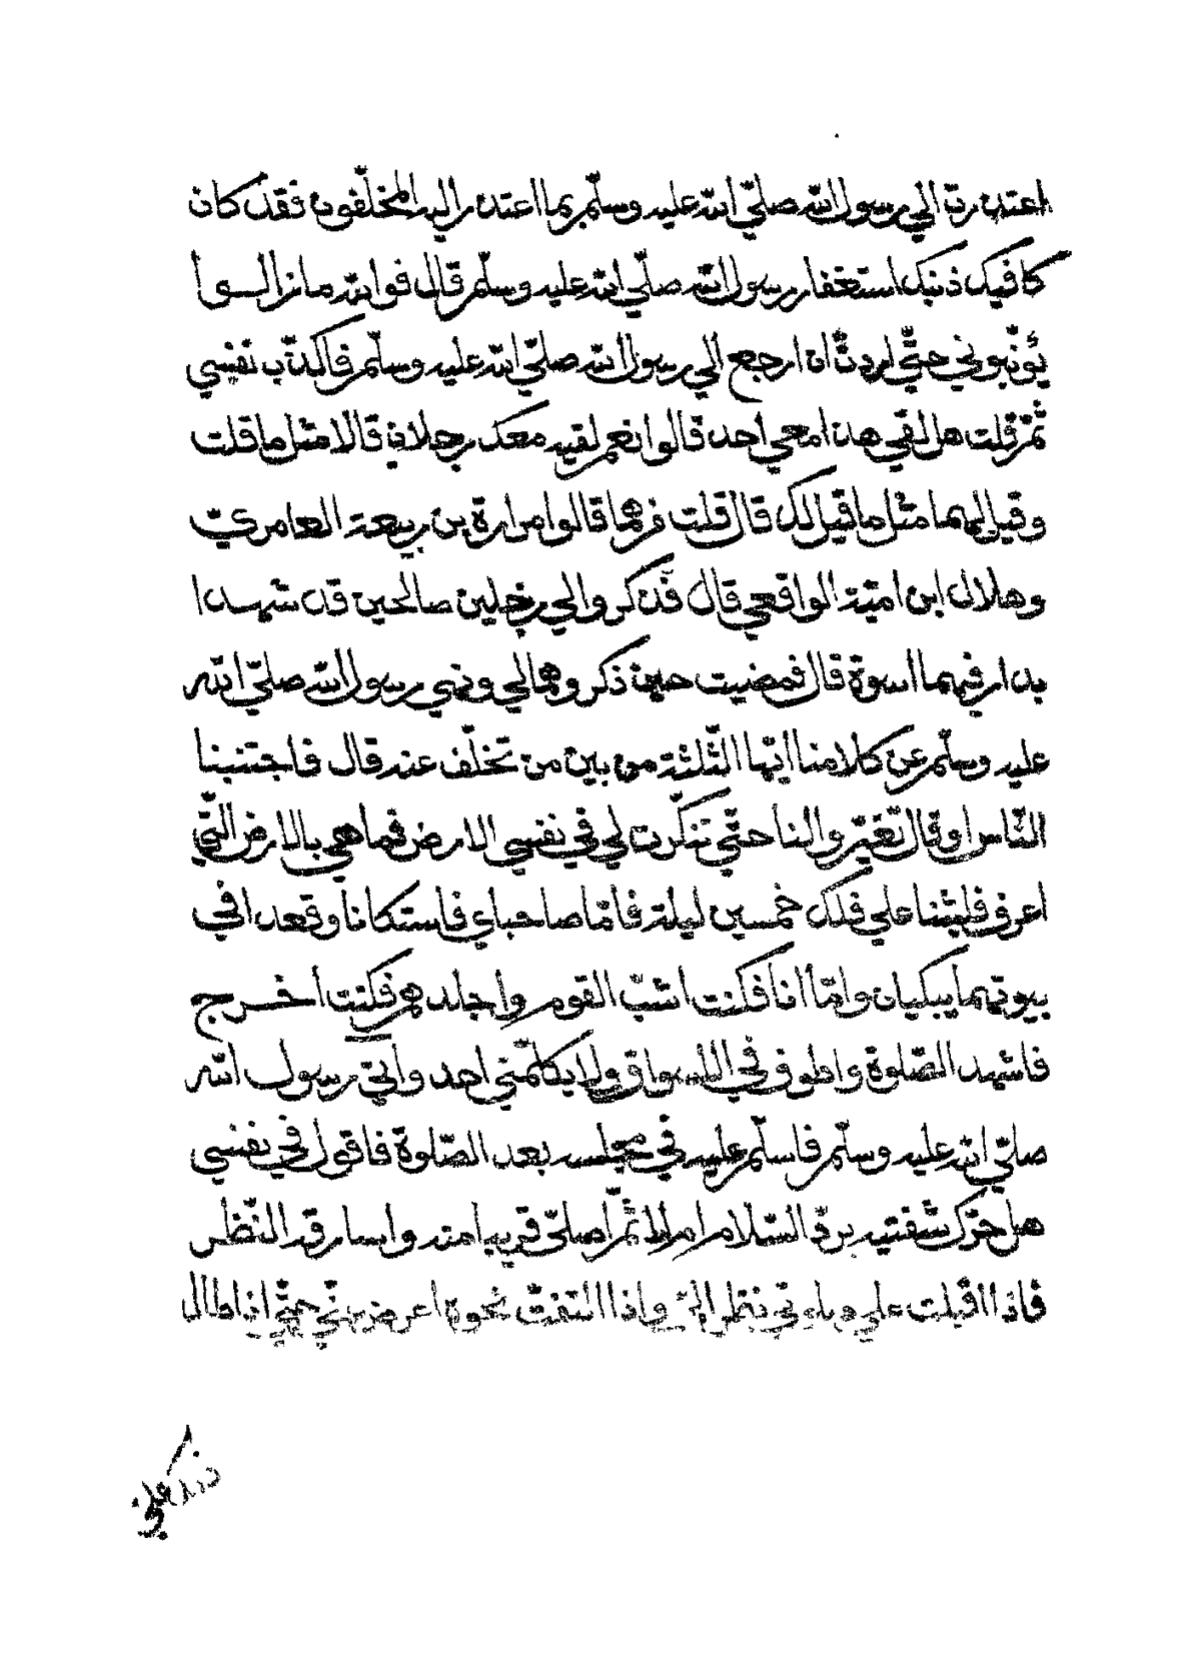 اعتذرت الي رسول الله صلّي الله عليه وسلّم بما اعتذر اليه المخلّفون فقد كان
كافيك ذنبك استغفار رسول الله صلّي الله عليه وسلّم قال فوالله مازالوا
يؤنّبوني حتّي اردت ان ارجع الي رسول الله صلّي الله عليه وسلّم فاكذّب نفسي
ثمّ قلت هل لقي هذا معي احد قالوا نعم لقيه معك رجلان قالا مثل ما قلت
وقيل لهما مثل ما قيل لك قال قلت من هما قالوا مرارة بن ربيعة العامريّ
وهلال ابن اميّة الواقعي قال فذكروا لي رجلين صالحين قد شهدا
بدار فيهما اسوة قال فمضيت حين ذكروهما لي ونهي رسول الله صلّي الله
عليه وسلّم عن كلامنا ايّها الثّلثة من بين من تخلّف عنه قال فاجتنبنا
النّاس اوقال تغيّروا لنا حتّي تنكّرت لي في نفسي الارض فما هي بالارض الّتي
اعرف فلبثنا علي ذلك خمسين ليلة فامّا صاحباي فاستكانا وقعدا في
بيوتهما يبكيان وامّا انا فكنت اشبّ القوم واجلدهم فكنت اخرج
فاشهد الصّلوة واطوف في الاسواق ولا يكلّمني احد وآتي رسول الله
صلّي الله عليه وسلّم فاسلّم عليه في مجلسه بعد الصّلوة فاقول في نفسي
هل حرّك شفتيه بردّ السّلام ام لا ثمّ اصلّي قريبا منه واسارقه النّظر
فاذا اقبلت علي صلوتي نظر اليّ واذا التفتّ نحوه اعرض عنّي حتّي اذا طال
ذلك علي